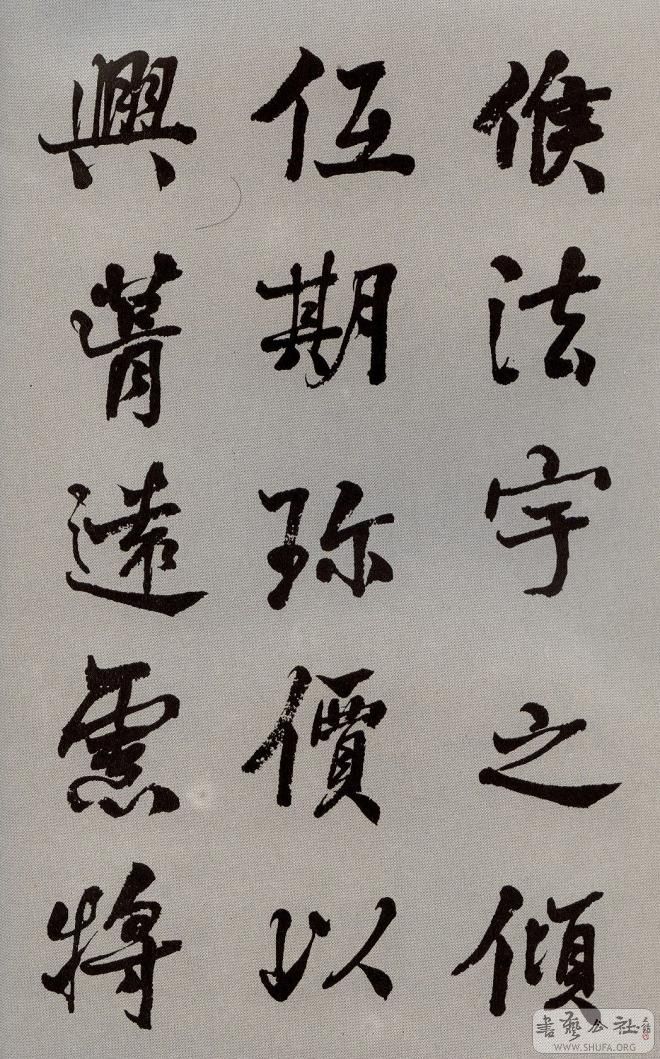 候法宇之傾
伍期珍價以
興遠慮將
書藝公社
WWW.SHUFA.ORG